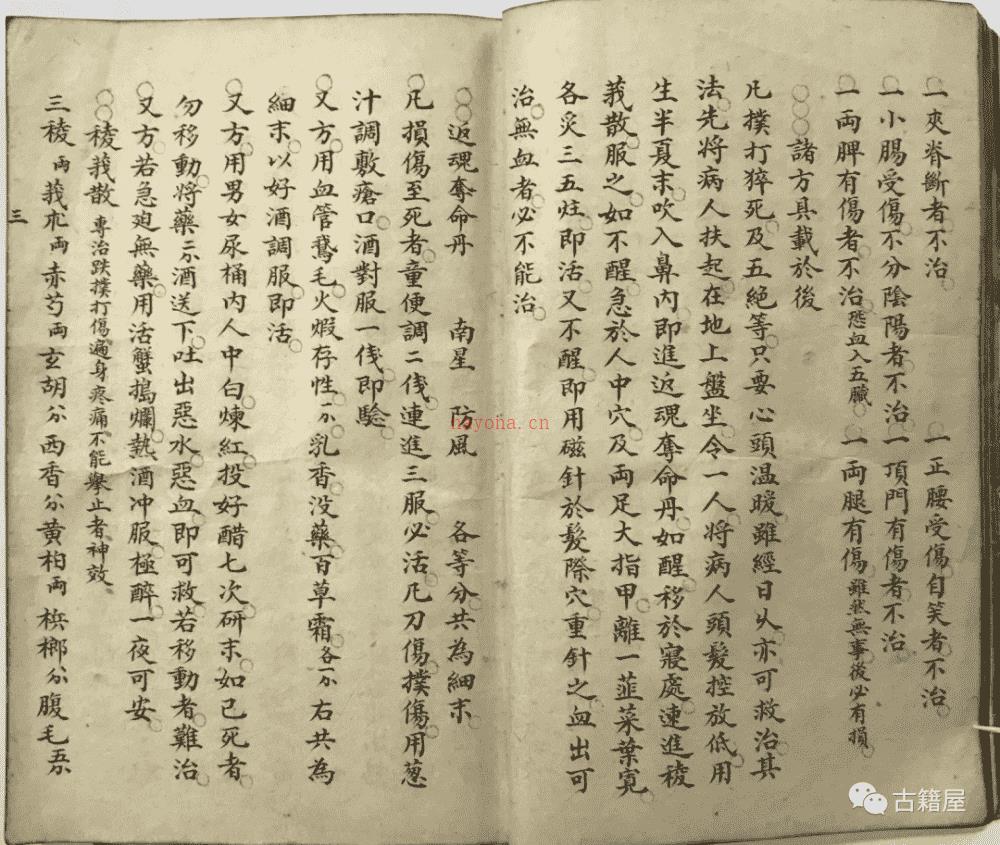 一夾脊斷者不治　一正腰受傷自笑者不治
一小腸受傷不分陰陽者不治　一頂門有傷者不治
一両脾有傷者不治恐血入五臟　一両腿有傷雖然無事後必有損
諸方具載於後
凡撲打猝死及五絕等只要心頭温暖雖經日乆亦可救治其
法先將病人扶起在地上盤坐令一人將病人頭髮控放低用
生半夏末吹入鼻內即進返魂奪命丹如醒移於寢處速進稜
莪散服之如不醒急於人中穴及両足大指甲離一韮菜葉寛
各炙三五炷即活又不醒即用磁針於髮際穴重針之血出可
治無血者必不能治
返魂奪命丹　南星　防風　各等分共為細末
凡損傷至死者童便調二伐連進三服必活凡刀傷撲傷用葱
汁調敷瘡口酒對服一伐即驗
又方用血管鵞毛火煆存性　乳香没藥百草霜各　右共為
細末以好酒調服即活
又方用男女尿桶內人中白煉紅投好醋七次研末如已死者
勿移動將藥　酒送下吐出惡水惡血即可救若移動者難治
又方若急廹無藥用活蟹搗爛熱酒冲服極醉一夜可安
稜莪散專治跌撲打傷遍身疼痛不能舉止者神效
三稜両莪朮両赤芍両玄胡　西香　黄柏両　梹榔　腹毛
三
hayoha.cn
古籍屋